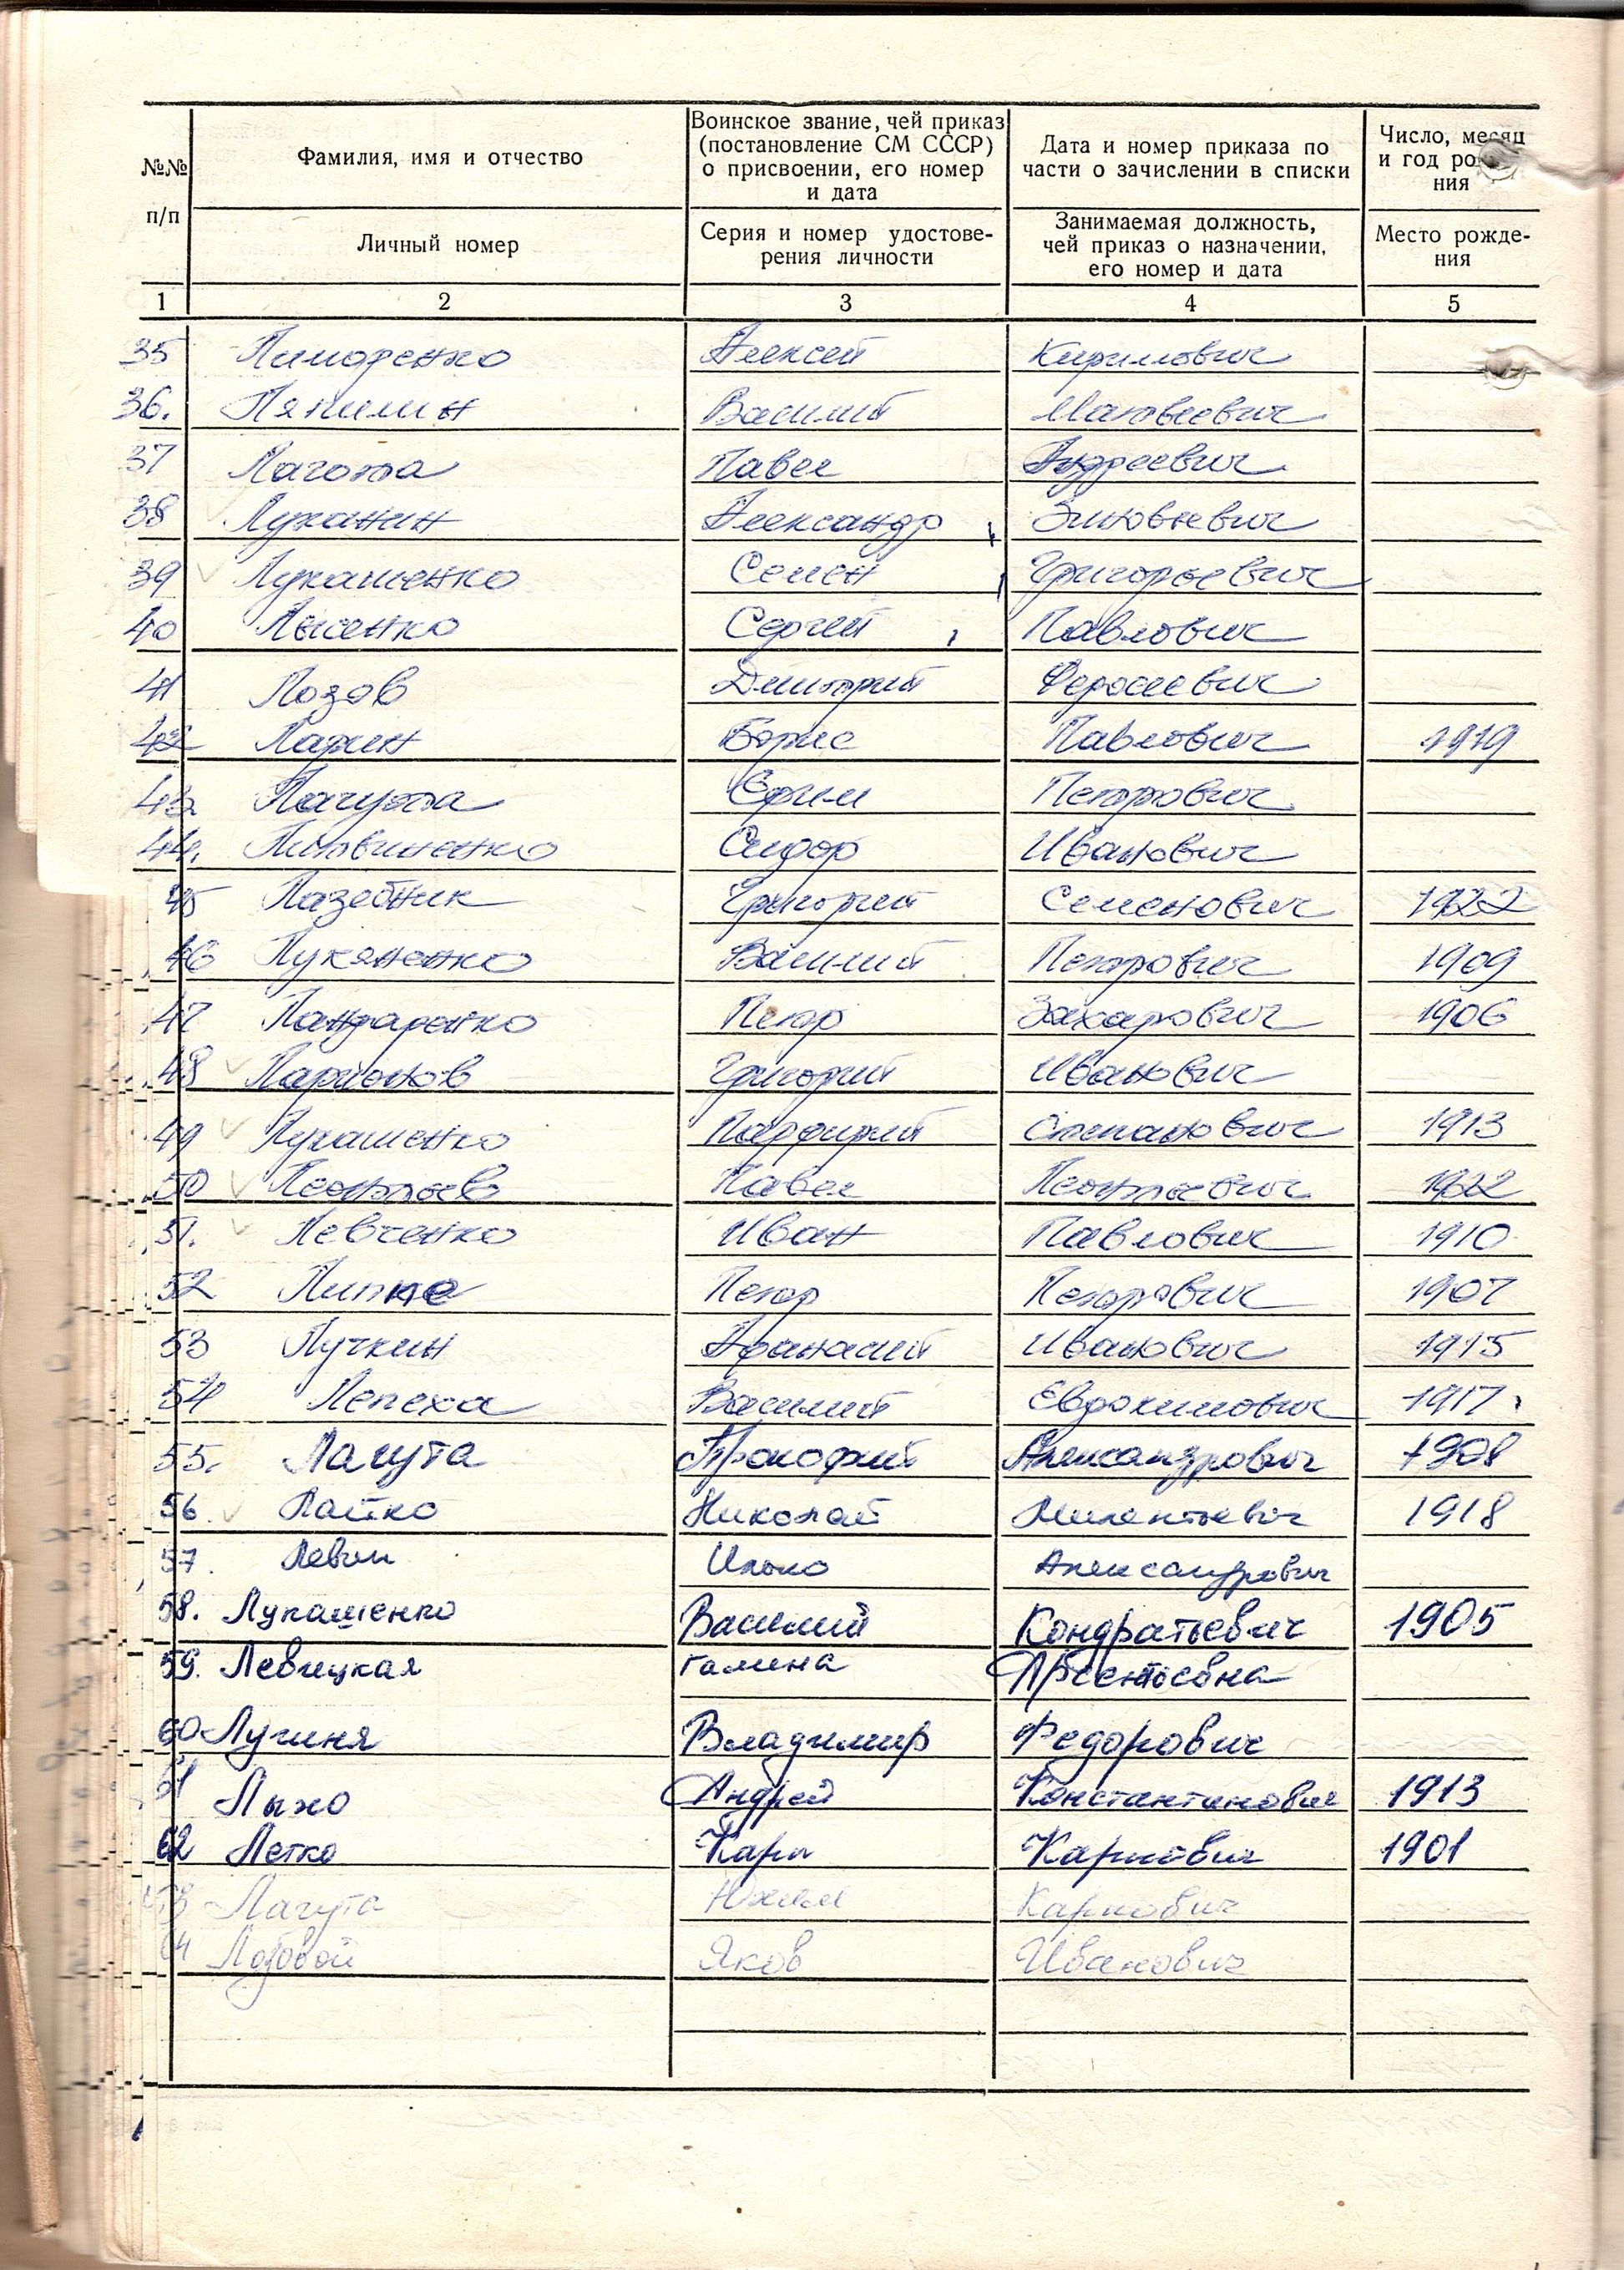 №№ п/п
Фамилия, имя и отчество
Воинское звание, чей приказ (постановление СМ СССР) о присвоении, его номер и дата
Дата и номер приказа по части о зачислении в списки
Число, месяц и год ро ния
Личный номер
Серия и номер удостове-
рения личности
Занимаемая должность, чей приказ о назначении, его номер и дата
Место рожде-
ния
1 2 3 4 5
35 Алексей Кирилович
36. Василий Матвеевич
37 Лагота Павел Андреевич
38 Луканин Александр Зиновьевич
39 Лукашенко Семен Григорьевич
40 Лысенко Сергей Павлович
41 Лозов Дмитрий
42 Ларин Борис Павлович 1919
43 Лагута Ефим Петрович
44. Литвиненко Сидор Иванович
45 Лазебник Григорий Семенович 1922
46 Лукяненко Василий Петрович 1909
47 Ландаренко Петр Захарович 1906
48 Ларионов Григорий Иванович
49 Лукашенко Парфирий Степанович 1913
50 Леонтьев Павел Леонтьевич 1922
51. Левченко Иван Павлович 1910
52 Петр Петрович 1907
53 Лучкин Афанасий Иванович 1915
54 Лепеха Василий Евдокимович 1917
55. Лагута Прокофий Александрович 1908
56 Лайко Николай Милентьевич 1918
57. Левин Илько Александрович
58. Лукашенко Василий Кондратьевич 1905
59. Левицкая Галина Арсентьевна
60 Лугиня Владимир Федорович
61 Лыхо Андрей Константинович 1913
62 Летко Карп Карпович 1901
63 Лагута Юхим Карпович
64 Лозовой Яков Иванович